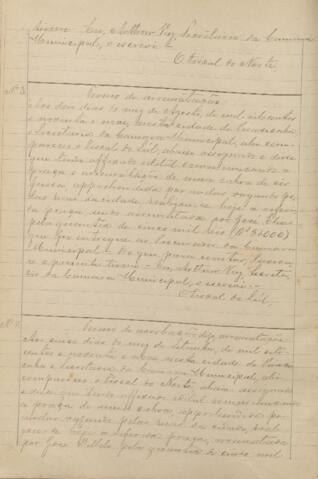 Eu, Arthur Secretario da Camara
Municipal, o escrevi
O Fiscal do Norte
Nº 3
Termo de arrematação
Aos dois dias do mez de Agosto, de mil oitocentos
e noventa e nove, nesta cidade de
e Secretaria da Camara Municipal, ahi com-
pareceu o Fiscal do Sul, abaixo assignado e disse
que tendo affixado edital
praça e arrematação de uma cabra
apprehendida por andar vagando pe-
las ruas da cidade, realizou-se hoje a
praça, sendo arrematada por José
pela quantia de cinco mil reis (Rs 5$000)
que foi entregue ao Procurador da Camara
Municipal. Do que para constar,
o presente termo. Eu, Arthur Secreta-
rio da Camara Municipal, o escrevi
O Fiscal do Sul,
Termo de digo, arrematação
Aos dias do mez de Setembro, de mil oito-
centos e noventa e nove nesta cidade de
e Secretaria da Camara Municipal, ahi
compareceu o Fiscal do Norte, abaixo assignado
e disse que tendo affixado edital
a praça de uma cabra, apprehendida por
andar vagando pelas ruas da cidade, reali-
zou-se hoje a referida praça, arrematada
por José pela quantia de cinco mil